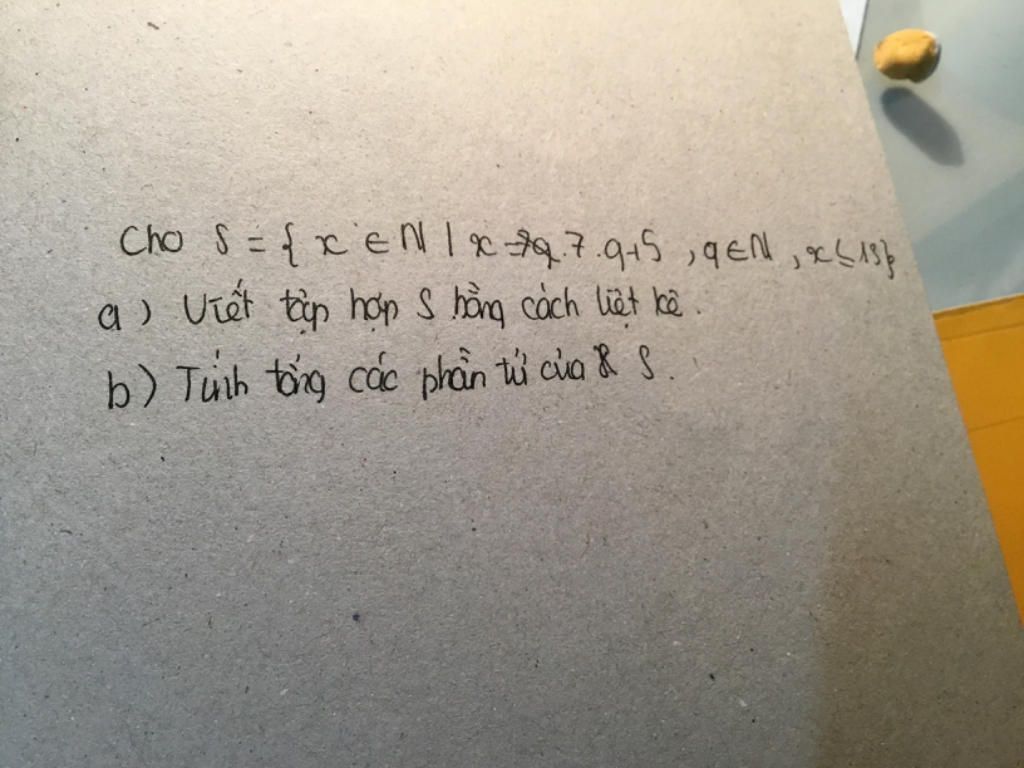 Cho S = { x ∈ N | x = 7.q+5 , q ∈ N , x ≤ 15}
a) Viết tập hợp S bằng cách liệt kê.
b) Tính tổng các phần tử của S.